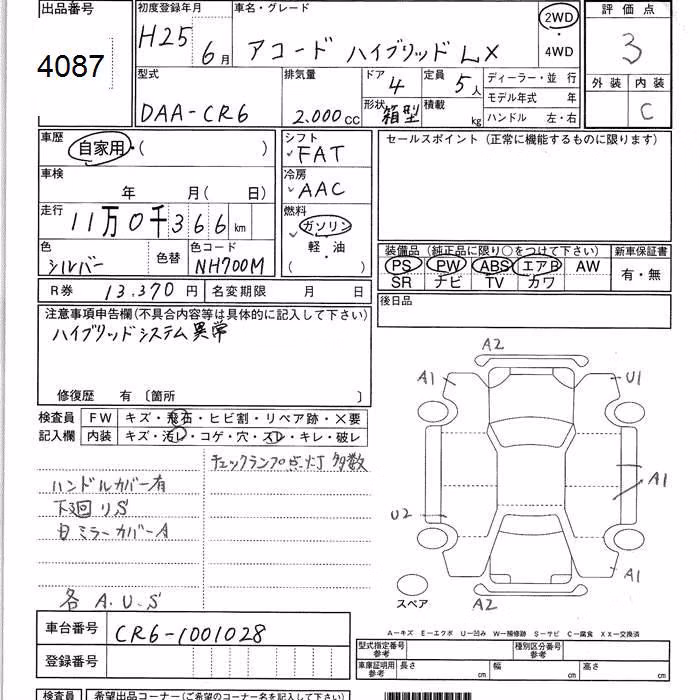 出品番号
4087
初度登録年月
H25 6月
車名・グレード
アコード ハイブリッド LX
2WD
・
4WD
評価点
3
外装 内装
C
型式
DAA-CR6
排気量
2.000 CC
ドア
4
形状
箱型
定員
5人
積載
kg
ディーラー・並行
モデル年式 年
ハンドル 左・右
車歴
自家用・( )
車検
年 月( 日)
走行
11万0千366 km
色
シルバー
色替
色コード
NH700M
シフト
FAT
冷房
AAC
燃料
ガソリン
軽・油
( )
セールスポイント (正常に機能するものに限ります)
装備品 (純正品に限り○をつけて下さい)
PS PW ABS エアB AW
SR ナビ TV カワ
新車保証書
有・無
後日品
R券 13.370円
名変期限 月 日
注意事項申告欄(不具合内容等は具体的に記入して下さい)
ハイブリッドシステム異常
修復歴 有 〔箇所 〕
検査員
記入欄
FW キズ・飛石・ヒビ割・リペア跡・×要
内装 キズ・汚レ・コゲ・穴・スレ・キレ・破レ
チェックランプ点灯多数
ハンドルカバー有
下廻りS
ミラーカバーA
各 A.U.S
車台番号
CR6-1001028
登録番号
A2
A1
U1
A1
U2
A1
A2
スペア
A-キズ E-エクボ U-凹み W-補修跡 S-サビ C-腐食 XX-交換済
型式指定番号
参考
種別区分番号
参考
車庫証明用
参考
長さ cm
幅 cm
高さ cm
検査員
希望出品コーナー(ご希望のコーナー名を記入して下さい)